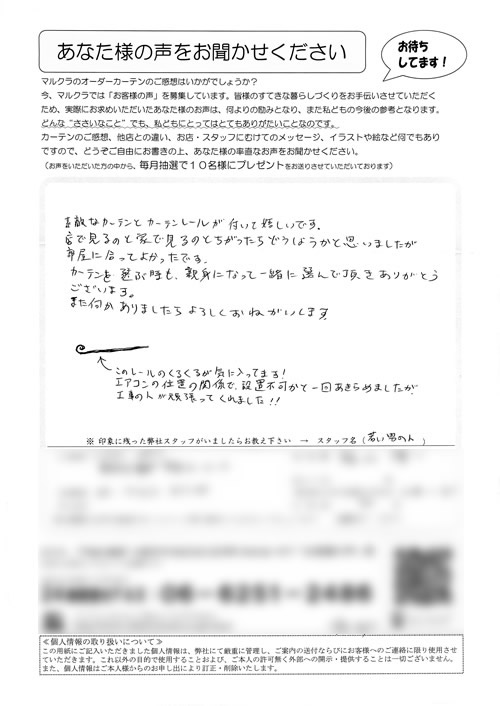 あなた様の声をお聞かせください
お待ち
してます！
マルクラのオーダーカーテンのご感想はいかがでしょうか？
今、マルクラでは「お客様の声」を募集しています。皆様のすてきな暮らしづくりをお手伝いさせていただく
ため、実際にお求めいただいたあなた様のお声は、何よりの励みとなり、また私どもの今後の参考となります。
どんな“ささいなこと”でも、私どもにとってはとてもありがたいことなのです。
カーテンのご感想、他店との違い、お店・スタッフにむけてのメッセージ、イラストや絵など何でもあり
ですので、どうぞご自由にお書きの上、あなた様の率直なお声をお聞かせください。
（お声をいただいた方の中から、毎月抽選で１０名様にプレゼントをお送りさせていただいております）
素敵なカーテンとカーテンレールが付いて嬉しいです。
店で見るのと家で見るのとちがったらどうしようかと思いましたが
部屋に合ってよかったです。
カーテンを選ぶ時も、親身になって一緒に選んで頂きありがとう
ございます。
また何かありましたらよろしくおねがいします
このレールのくるくるが気に入ってます！
エアコンの位置の関係で、設置不可かと一回あきらめましたが
工事の人が頑張ってくれました！！
※ 印象に残った弊社スタッフがいましたらお教え下さい → スタッフ名（若い男の人）
06-6251-2486
≪個人情報の取り扱いについて≫
この用紙にご記入いただきました個人情報は、弊社にて厳重に管理し、ご案内の送付ならびにお客様へのご連絡に限り使用させ
ていただきます。これ以外の目的で使用することおよび、ご本人の許可無く外部への開示・提供することは一切ございません。
また、個人情報はご本人様からのお申し出により訂正・削除いたします。